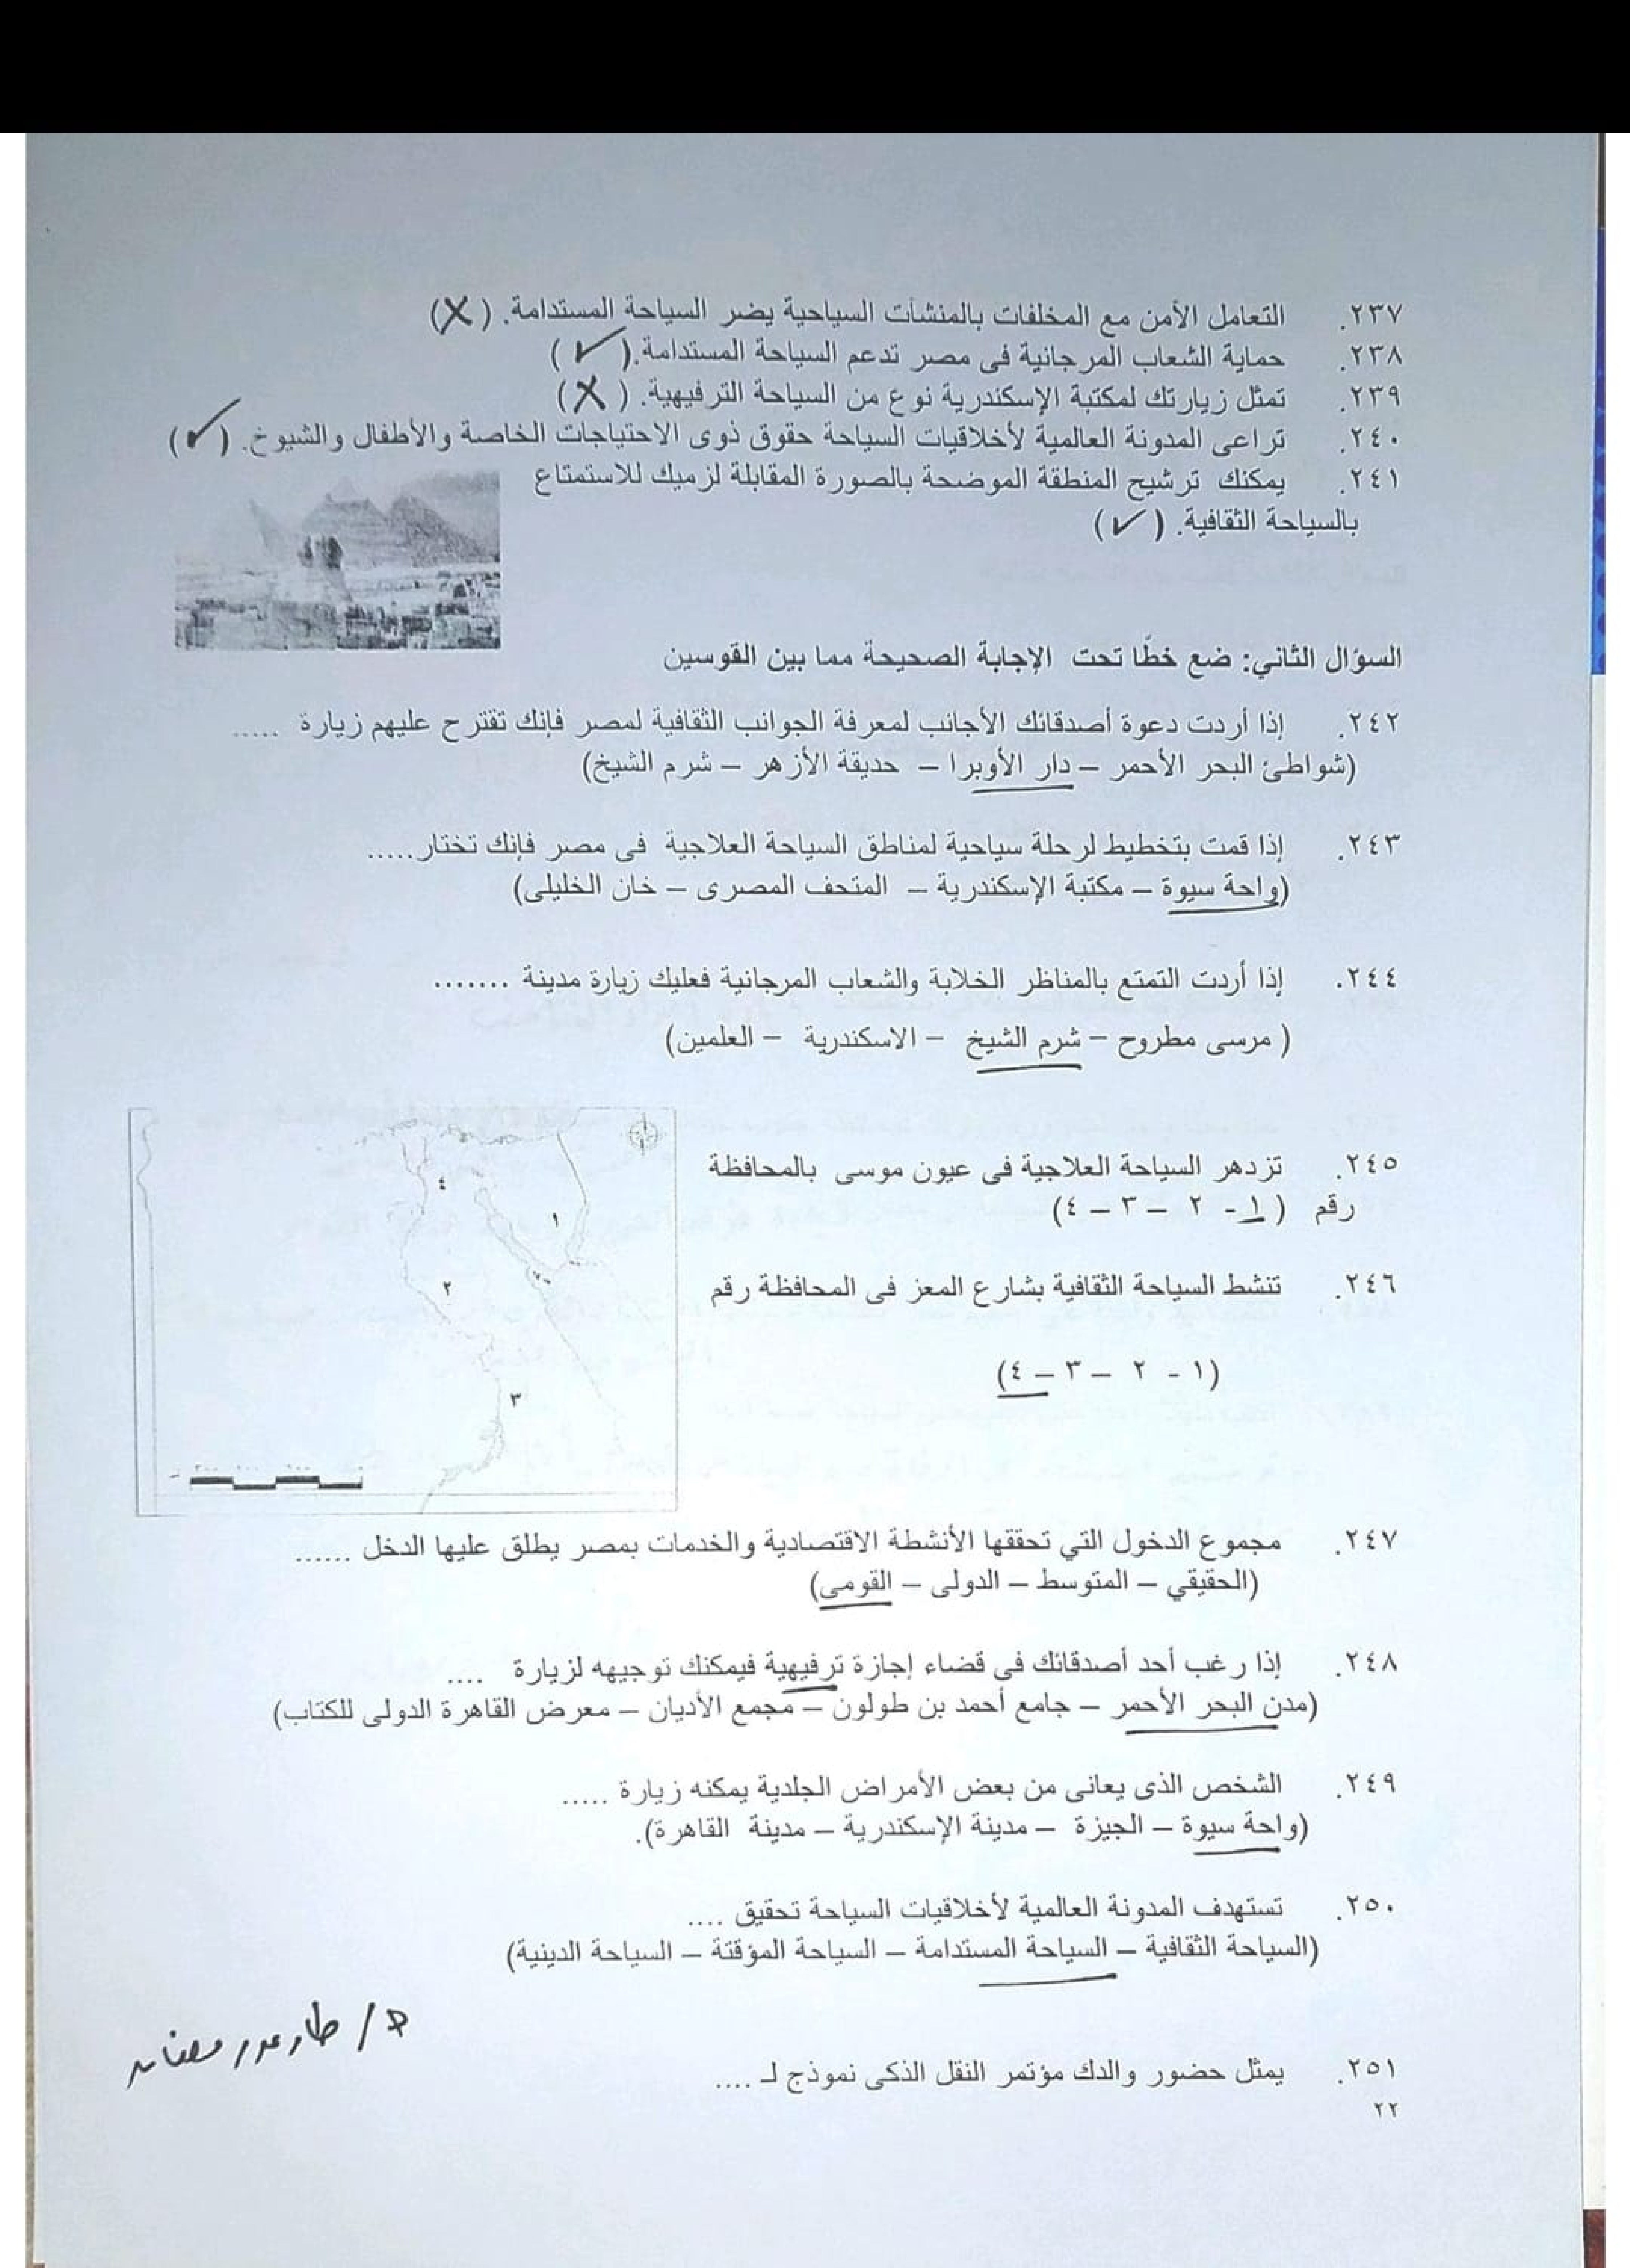 ٢٣٧. التعامل الأمن مع المخلفات بالمنشآت السياحية يضر السياحة المستدامة. (X)
٢٣٨. حماية الشعاب المرجانية فى مصر تدعم السياحة المستدامة.(✓)
٢٣٩. تمثل زيارتك لمكتبة الإسكندرية نوع من السياحة الترفيهية. (X)
٢٤٠. تراعى المدونة العالمية لأخلاقيات السياحة حقوق ذوى الاحتياجات الخاصة والأطفال والشيوخ. (✓)
٢٤١. يمكنك ترشيح المنطقة الموضحة بالصورة المقابلة لزميك للاستمتاع
بالسياحة الثقافية. (✓)
السؤال الثاني: ضع خطًا تحت الإجابة الصحيحة مما بين القوسين
٢٤٢. إذا أردت دعوة أصدقائك الأجانب لمعرفة الجوانب الثقافية لمصر فإنك تقترح عليهم زيارة .....
(شواطئ البحر الأحمر – دار الأوبرا – حديقة الأزهر – شرم الشيخ)
٢٤٣. إذا قمت بتخطيط لرحلة سياحية لمناطق السياحة العلاجية فى مصر فإنك تختار.....
(واحة سيوة – مكتبة الإسكندرية – المتحف المصرى – خان الخليلى)
٢٤٤. إذا أردت التمتع بالمناظر الخلابة والشعاب المرجانية فعليك زيارة مدينة .......
( مرسى مطروح – شرم الشيخ – الاسكندرية – العلمين)
٢٤٥. تزدهر السياحة العلاجية فى عيون موسى بالمحافظة
رقم (١ - ٢ – ٣ – ٤)
٢٤٦. تنشط السياحة الثقافية بشارع المعز فى المحافظة رقم
(١ - ٢ – ٣ – ٤)
٤
١
٢
٣
٢٤٧. مجموع الدخول التي تحققها الأنشطة الاقتصادية والخدمات بمصر يطلق عليها الدخل ......
(الحقيقي – المتوسط – الدولى – القومى)
٢٤٨. إذا رغب أحد أصدقائك فى قضاء إجازة ترفيهية فيمكنك توجيهه لزيارة ....
(مدن البحر الأحمر – جامع أحمد بن طولون – مجمع الأديان – معرض القاهرة الدولى للكتاب)
٢٤٩. الشخص الذى يعانى من بعض الأمراض الجلدية يمكنه زيارة .....
(واحة سيوة – الجيزة – مدينة الإسكندرية – مدينة القاهرة).
٢٥٠. تستهدف المدونة العالمية لأخلاقيات السياحة تحقيق ....
(السياحة الثقافية – السياحة المستدامة – السياحة المؤقتة – السياحة الدينية)
٢٥١. يمثل حضور والدك مؤتمر النقل الذكى نموذج لـ ....
٢٢